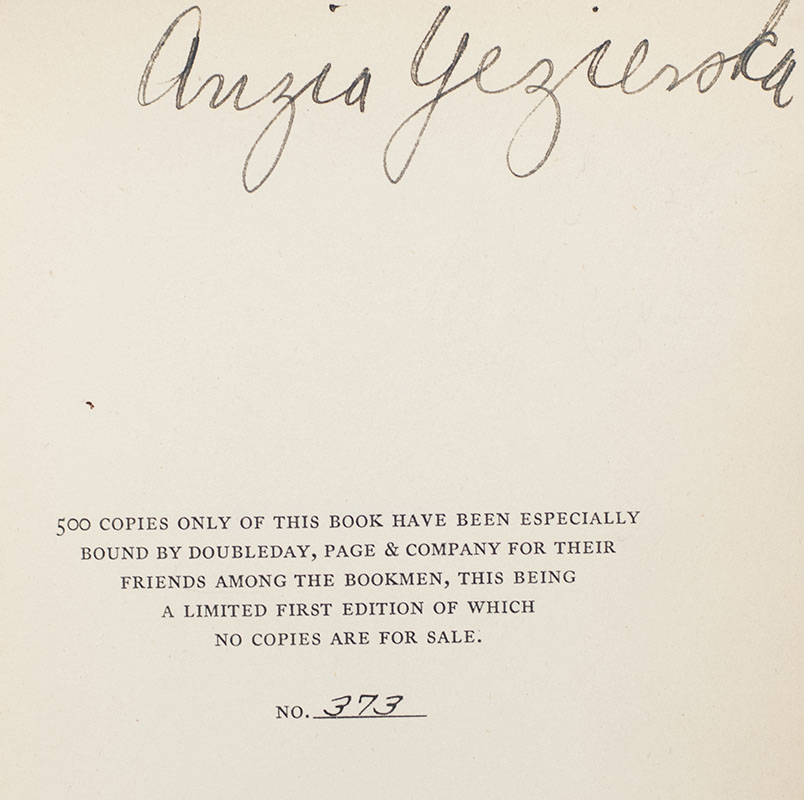 Anzia Yezierska
500 COPIES ONLY OF THIS BOOK HAVE BEEN ESPECIALLY
BOUND BY DOUBLEDAY, PAGE & COMPANY FOR THEIR
FRIENDS AMONG THE BOOKMEN, THIS BEING
A LIMITED FIRST EDITION OF WHICH
NO COPIES ARE FOR SALE.
NO. 373